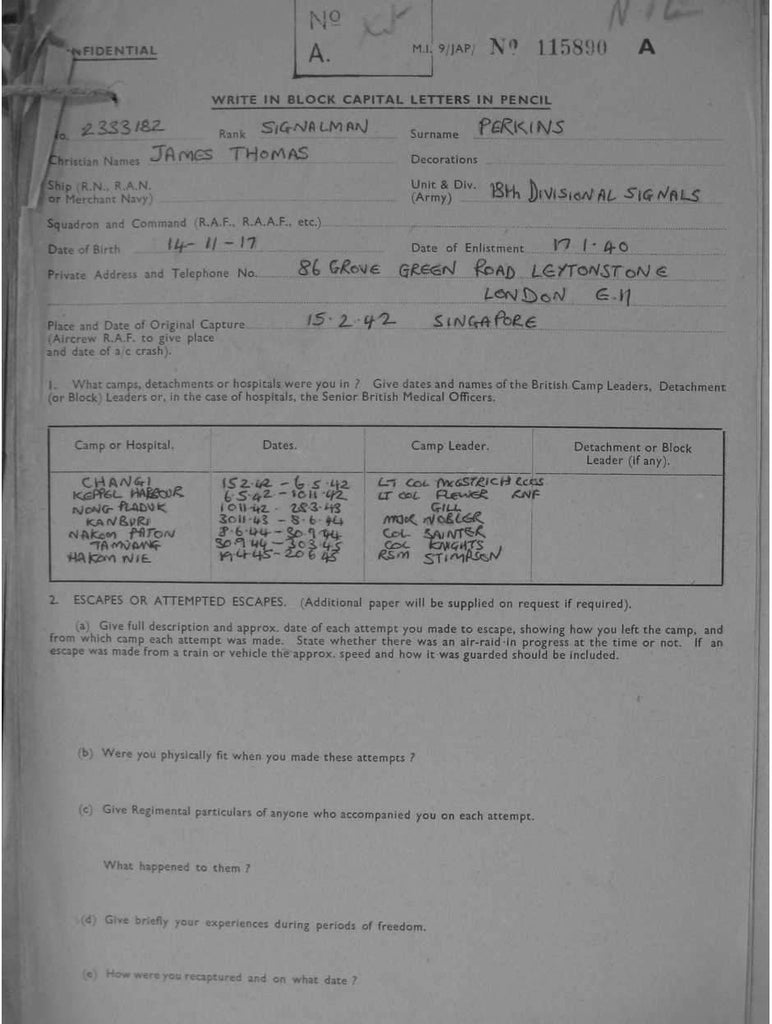 Nº
NIL
NFIDENTIAL
A.
M.I. 9/JAP/ Nº 115890 A
WRITE IN BLOCK CAPITAL LETTERS IN PENCIL
No. 2333182 Rank SIGNALMAN Surname PERKINS
Christian Names JAMES THOMAS Decorations
Ship (R.N., R.A.N. or Merchant Navy) Unit & Div. (Army) 18th DIVISIONAL SIGNALS
Squadron and Command (R.A.F., R.A.A.F., etc.)
Date of Birth 14-11-17 Date of Enlistment 17 1·40
Private Address and Telephone No. 86 GROVE GREEN ROAD LEYTONSTONE
LONDON E.11
Place and Date of Original Capture 15·2·42 SINGAPORE
(Aircrew R.A.F. to give place
and date of a/c crash).
1. What camps, detachments or hospitals were you in ? Give dates and names of the British Camp Leaders, Detachment
(or Block) Leaders or, in the case of hospitals, the Senior British Medical Officers.
Camp or Hospital. Dates. Camp Leader. Detachment or Block Leader (if any).
CHANGI 15 2·42 - 6·5·42 LT COL
KEPPEL HARBOUR 6·5·42 - 10 11·42 LT COL FLOWER RNF
NONG PLADUK 10 11·42 - 28 3·43 GILL
KANBURI 30 11·43 - 8·6·44 NOBLER
NAKOM PATON 8·6·44 - 30 9 44 COL SAINTER
TAMUANG 30 9 44 - 30 3 45 COL KNIGHTS
NAKOM NIE 19 4 45 - 20 6 45 RSM STIMPSON
2. ESCAPES OR ATTEMPTED ESCAPES. (Additional paper will be supplied on request if required).
(a) Give full description and approx. date of each attempt you made to escape, showing how you left the camp, and
from which camp each attempt was made. State whether there was an air-raid in progress at the time or not. If an
escape was made from a train or vehicle the approx. speed and how it was guarded should be included.
(b) Were you physically fit when you made these attempts ?
(c) Give Regimental particulars of anyone who accompanied you on each attempt.
What happened to them ?
(d) Give briefly your experiences during periods of freedom.
(e) How were you recaptured and on what date ?